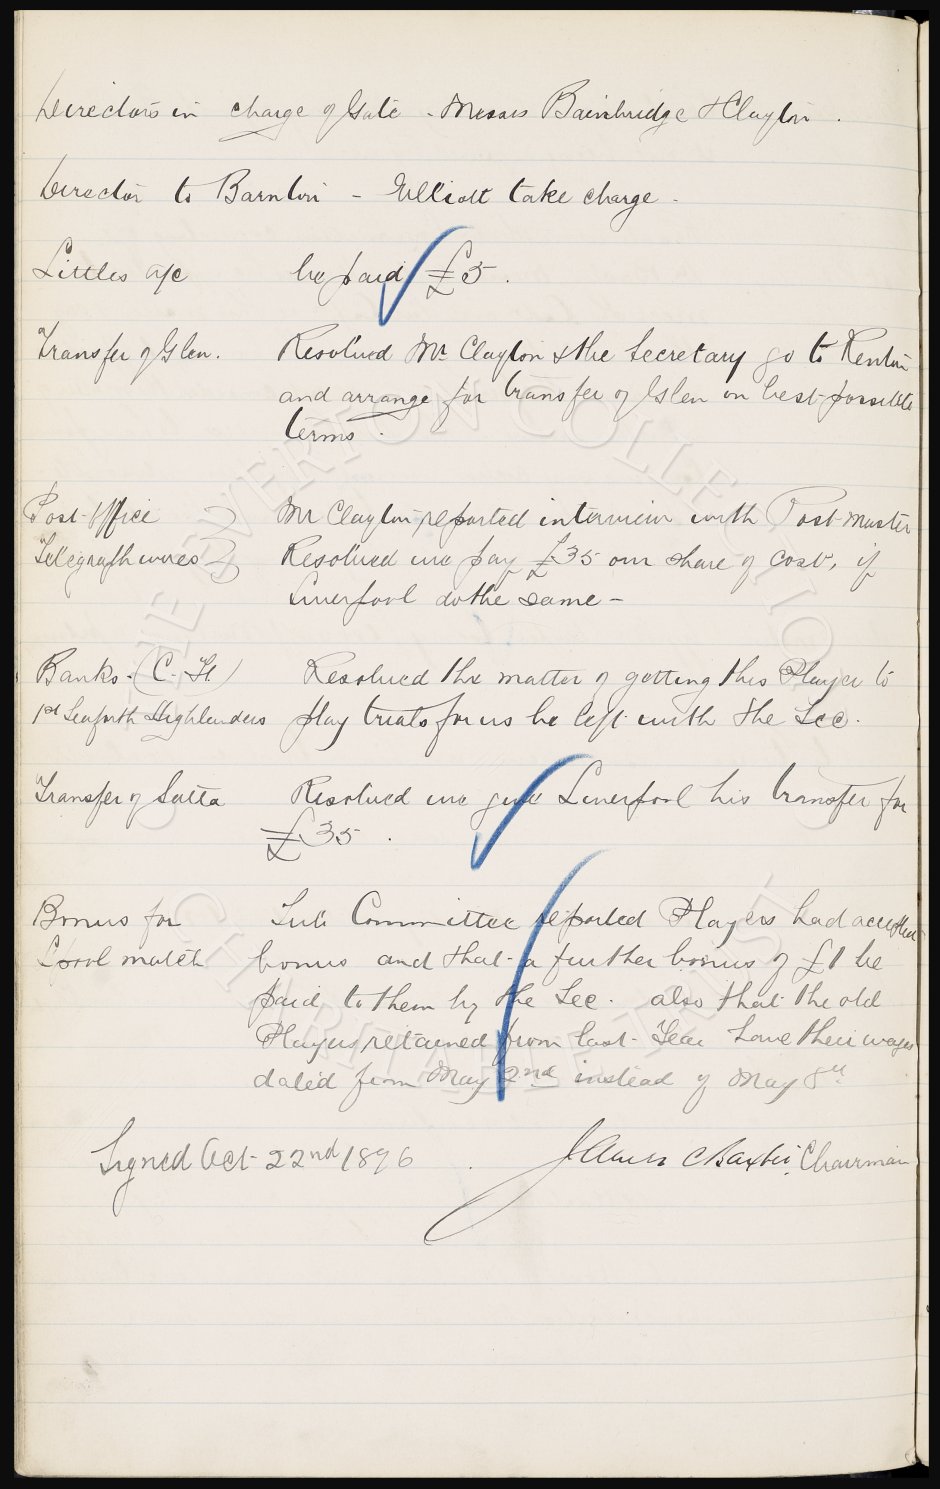 Directors in charge of Gate - Messrs Bainbridge & Clayton.
Director to Barnton - Elliott take charge -
Littles a/c be paid £5.
Transfer of Glen. Resolved Mr Clayton & the Secretary go to Renton
and arrange for transfer of Glen on best possible
terms.
Post-Office Mr Clayton reported interview with Post-Master
Telegraph wires Resolved we pay £35 our share of cost, if
Liverpool do the same -
Banks - (C. H) Resolved the matter of getting this Player to
1st Seaforth Highlanders play trials for us be left with the Sec.
Transfer of Resolved we give Liverpool his transfer for
£35.
Bonus for Sub Committee reported Players had accepted
L'pool match bonus and that a further bonus of £1 be
paid to them by the Sec. also that the old
Players retained from last Year have their wages
dated from May 2nd instead of May 8th
Signed Oct 22nd 1896 James C Baxter, Chairman
THE EVERTON COLLECTION
CHARITABLE TRUST